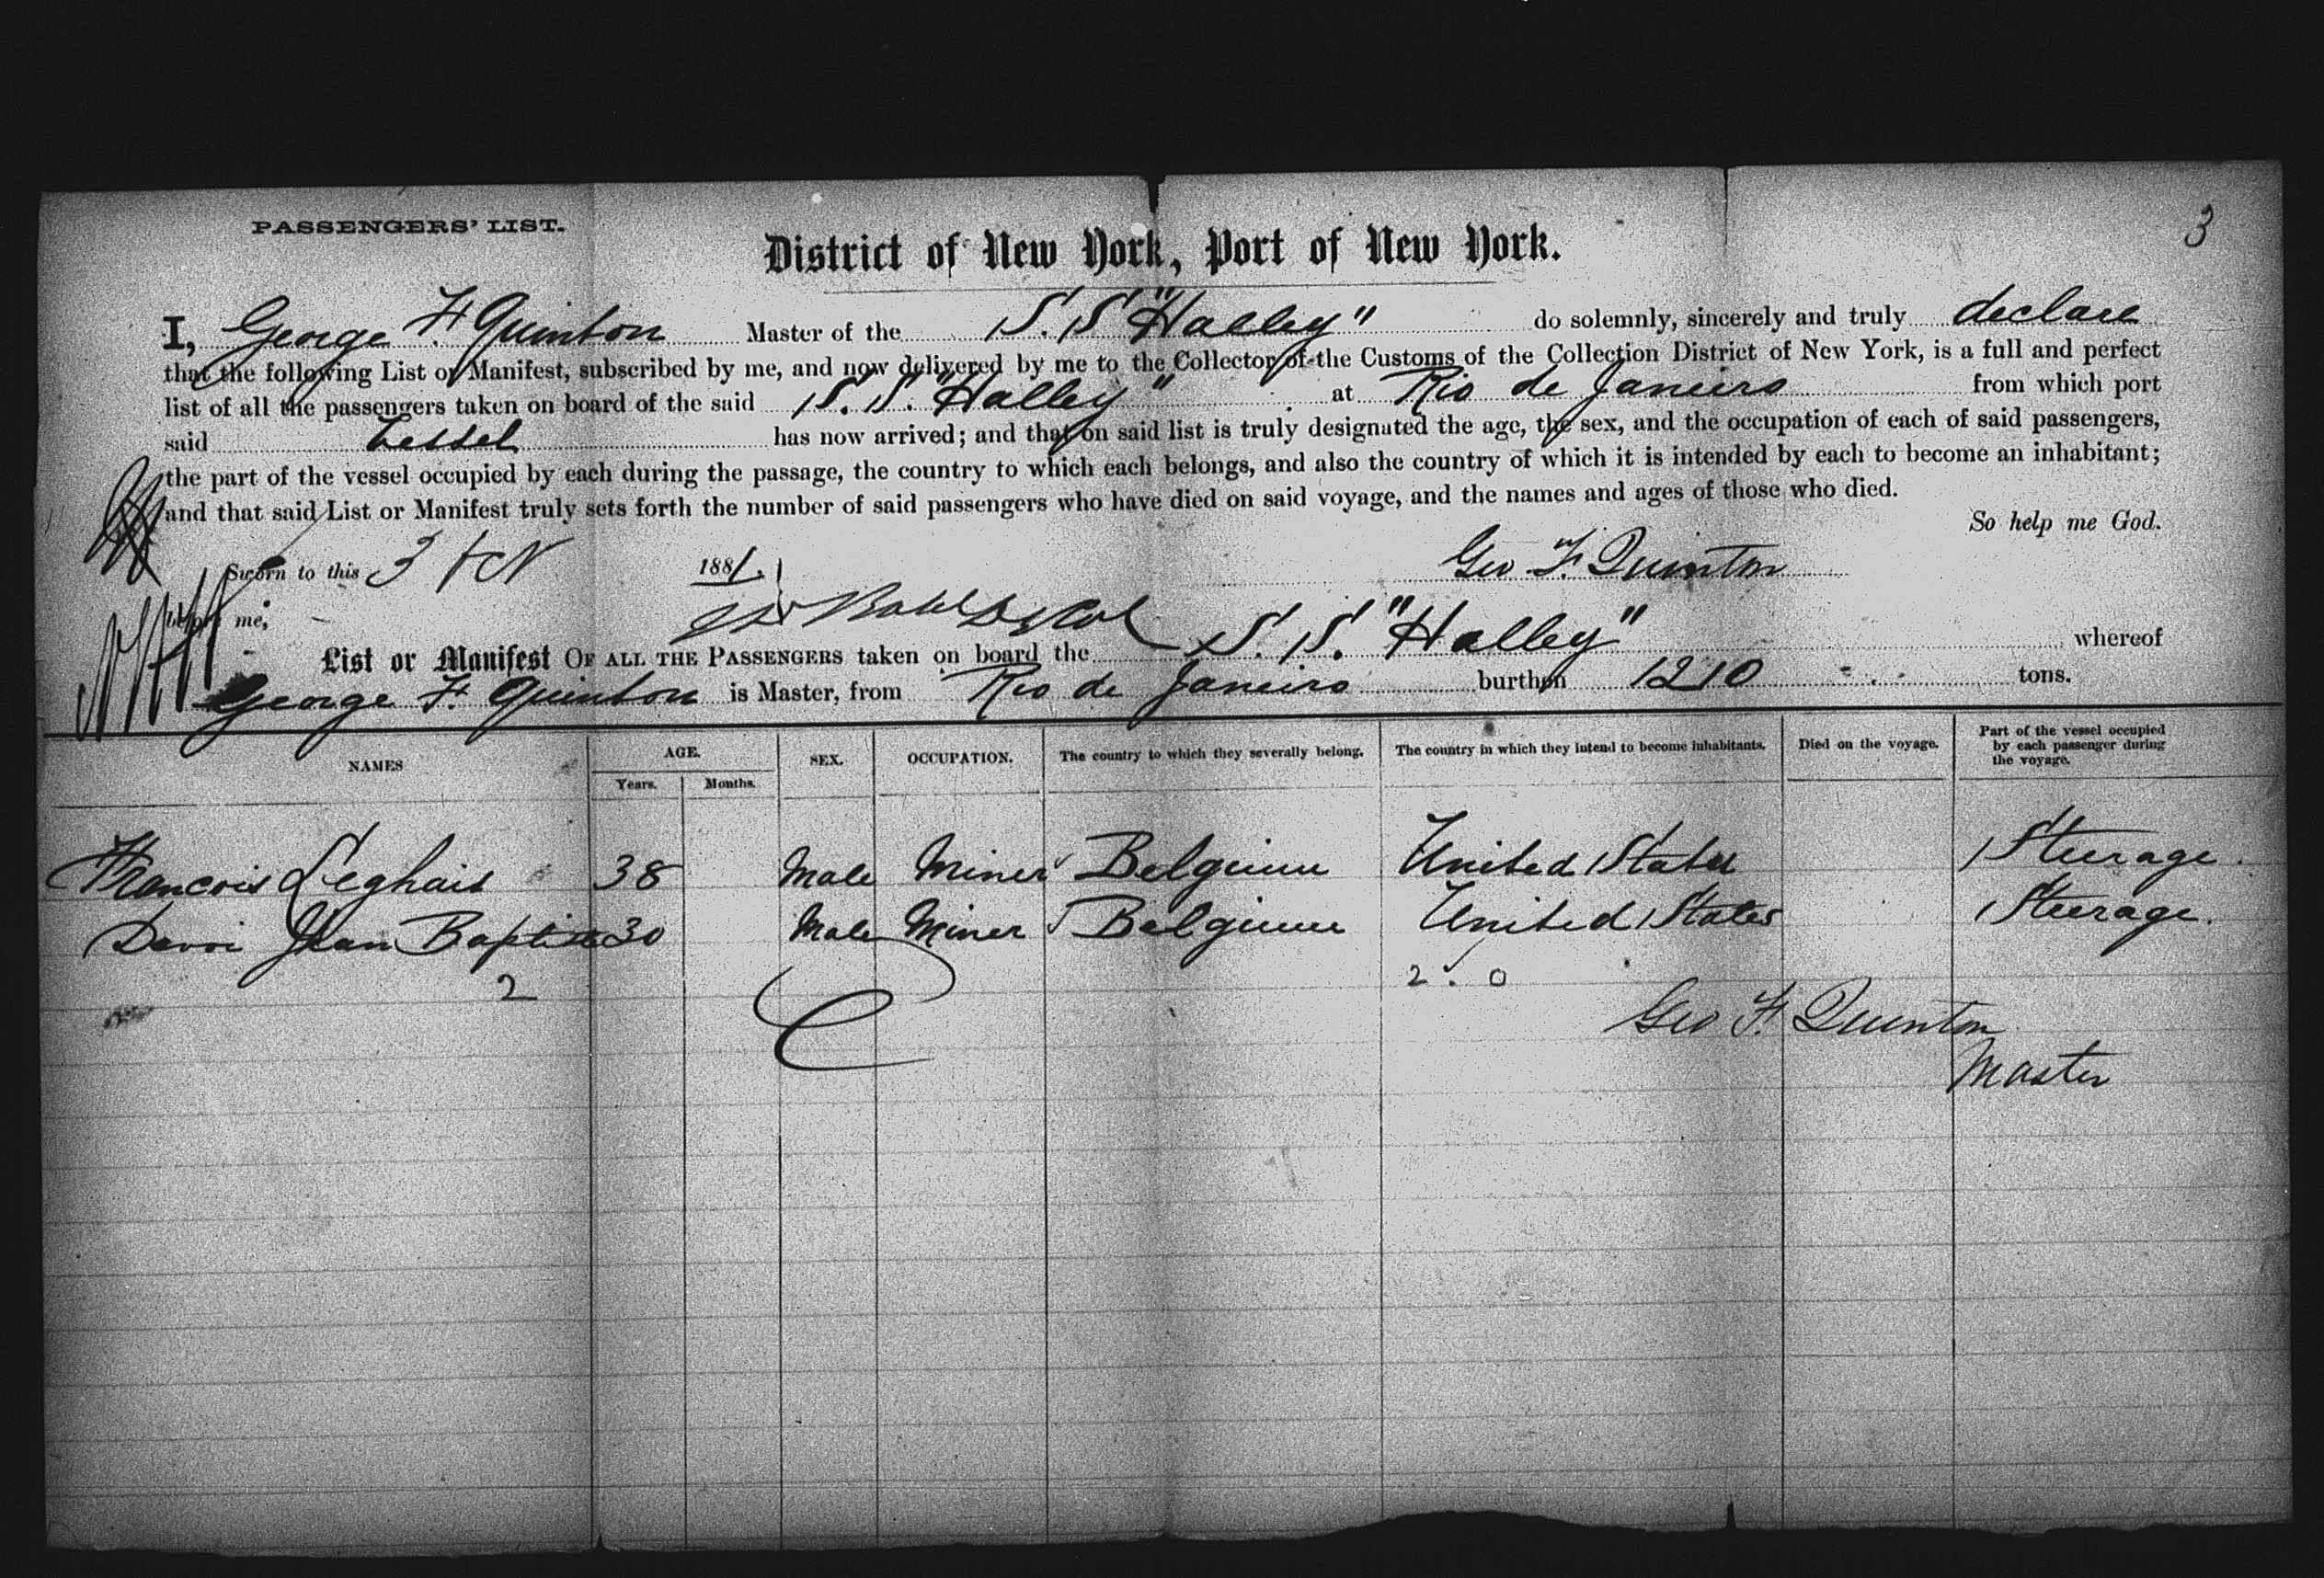 3
PASSENGERS' LIST.
District of New York, Port of New York.
I, George F. Quinton Master of the S.S "Halley" do solemnly, sincerely and truly declare
that the following List or Manifest, subscribed by me, and now delivered by me to the Collector of the Customs of the Collection District of New York, is a full and perfect
list of all the passengers taken on board of the said S.S. "Halley" at Rio de Janeiro from which port
said Vessel has now arrived; and that on said list is truly designated the age, the sex, and the occupation of each of said passengers,
the part of the vessel occupied by each during the passage, the country to which each belongs, and also the country of which it is intended by each to become an inhabitant;
and that said List or Manifest truly sets forth the number of said passengers who have died on said voyage, and the names and ages of those who died.
So help me God.
Sworn to this 3 1881. Geo F. Quinton
before me,
List or Manifest OF ALL THE PASSENGERS taken on board the S.S. "Halley" whereof
George F. Quinton is Master, from Rio de Janeiro burthen 1210 tons.
NAMES AGE. Years. Months. SEX. OCCUPATION. The country to which they severally belong. The country in which they intend to become inhabitants. Died on the voyage. Part of the vessel occupied by each passenger during the voyage.
Francois Leghait 38 Male Miner Belgium United States Steerage.
Jean Baptiste 30 Male Miner Belgium United States Steerage.
2 2. 0
Geo F. Quinton
Master